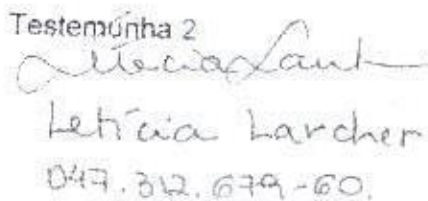 Testemunha 2
Letícia Larcher
047.312.679-60.